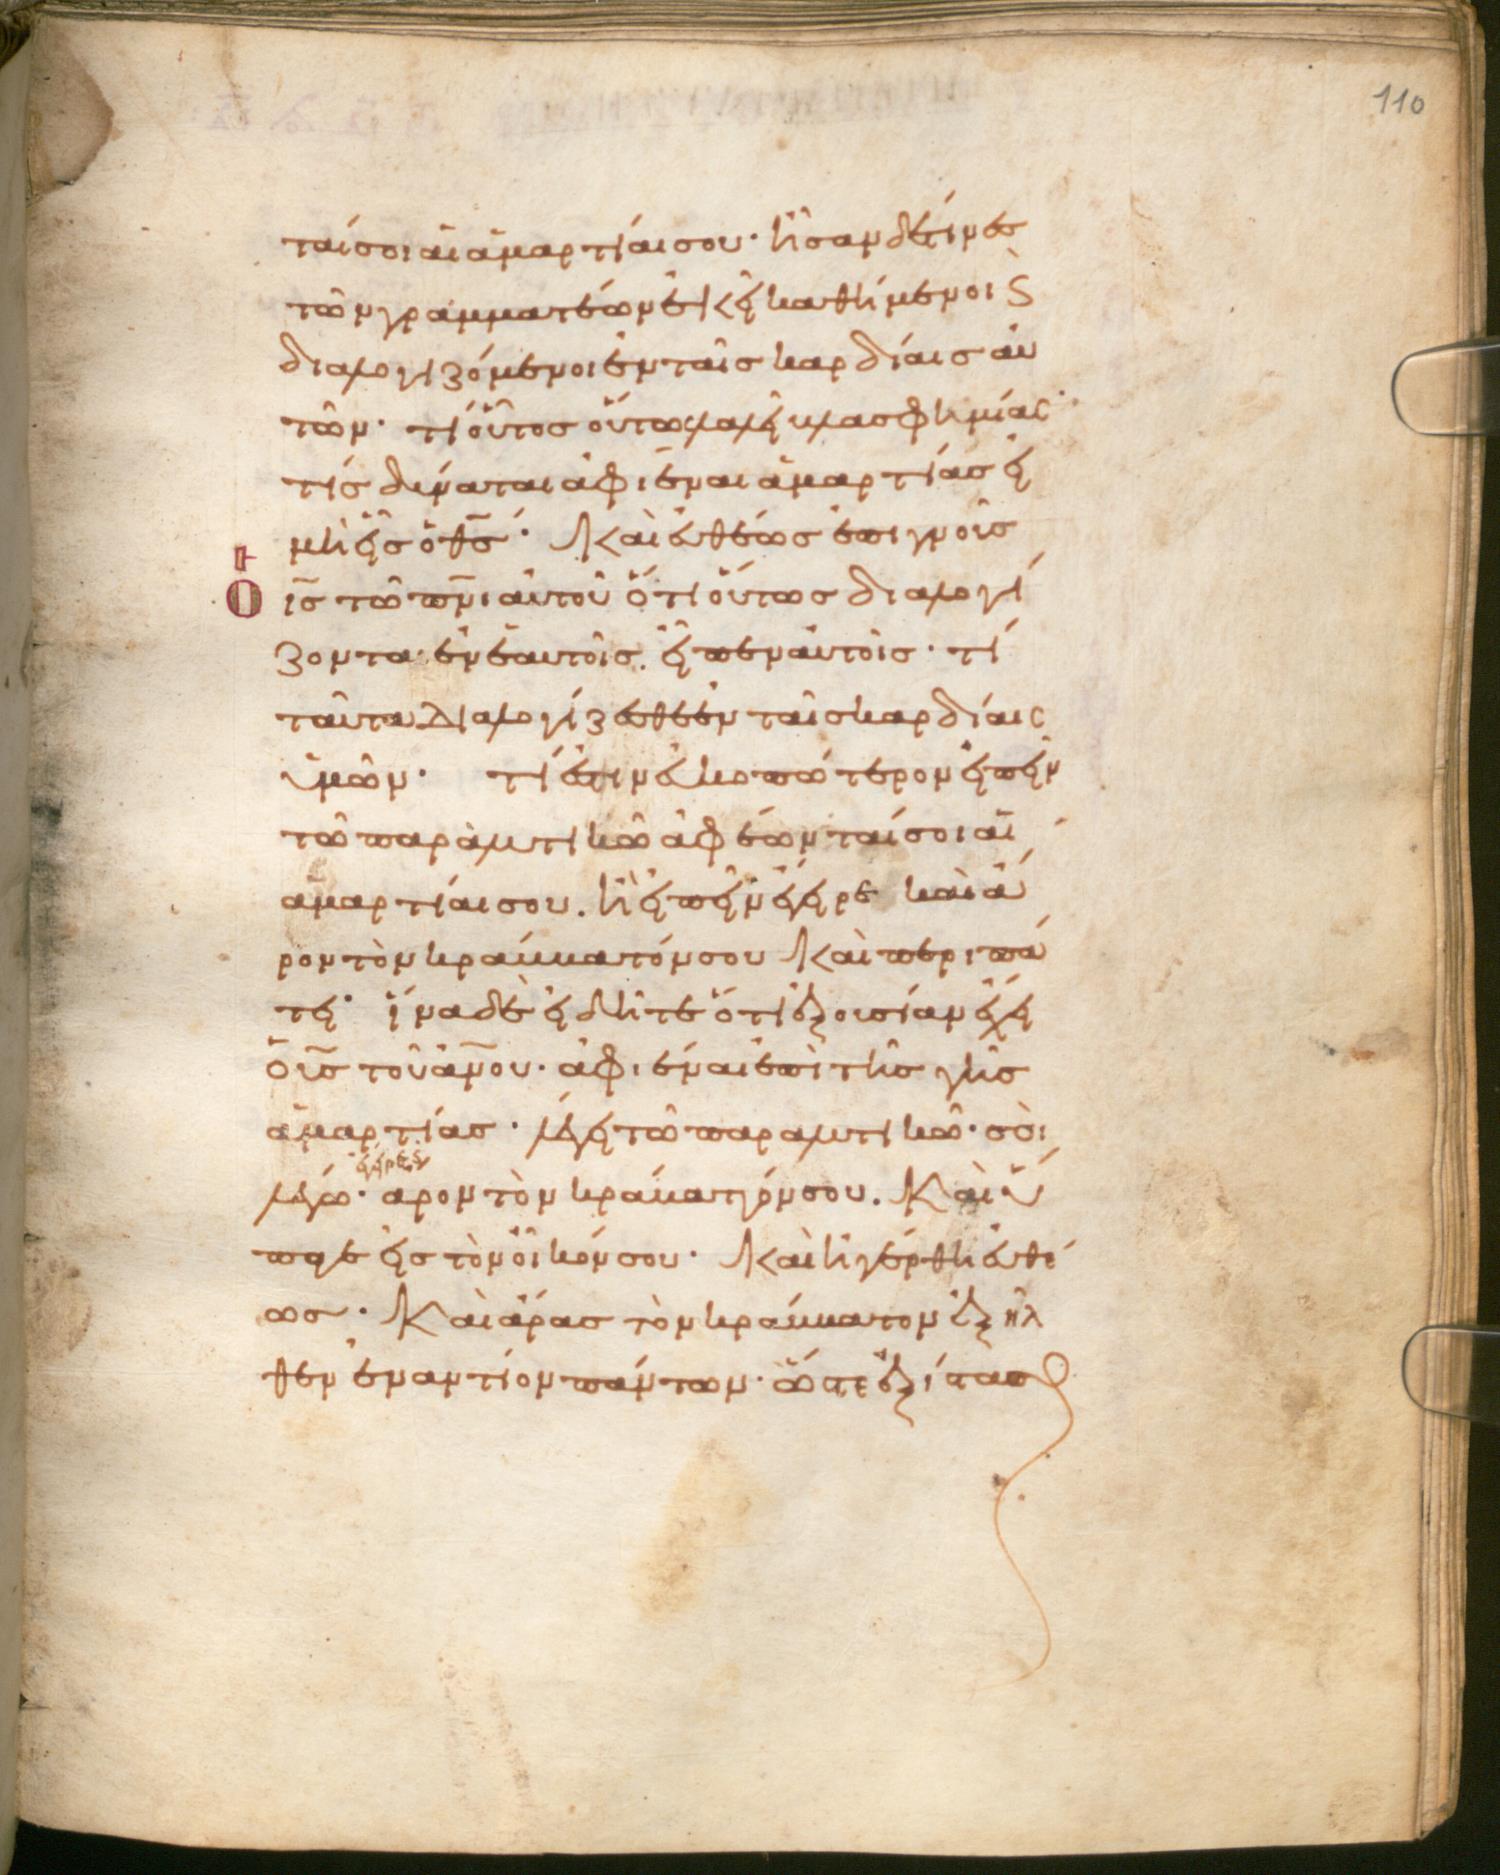 110
ταί σοι αἱ ἁμαρτίαι σου· ἦσαν δέ τινες
τῶν γραμματέων ἐκεῖ καθήμενοι ϛ
διαλογιζόμενοι ἐν ταῖς καρδίαις αὐ
τῶν· τί οὗτος οὕτως λαλεῖ βλασφημίας·
τίς δύναται ἀφιέναι ἁμαρτίας εἰ
μὴ εἷς ὁ θς̄· Καὶ εὐθέως ἐπιγνοῦς
Ὁ ις̄ τῶ πν̄ι αὐτοῦ ὅτι οὕτως διαλογί
ζονται ἐν ἑαυτοῖς. εἶπεν αὐτοῖς· τί
ταῦτα διαλογίζεσθε ἐν ταῖς καρδίαις
ὑμῶν· τί ἐστιν εὐκοπώτερον εἰπεῖν
τῶ παραλυτικῶ ἀφέωνταί σοι αἱ
ἁμαρτίαι σου. ἢ εἰπεῖν ἔγειρε καὶ ἆ
ρον τὸν κράββατόν σου Καὶ περιπά
τει· ἵνα δὲ εἰδῆτε ὅτι ἐξουσίαν ἔχει
ὁ υς̄ τοῦ ἀν̄ου· ἀφιέναι ἐπὶ τῆς γῆς
ἁμαρτίας· λέγει τῶ παραλυτικῶ· σὸι
ἔγειρε ϗ
λέγω· ἆρον τὸν κράβατόν σου. Καὶ ὕ
παγε εἰς τὸν οἶκόν σου· Καὶ ἠγέρθη εὐθέ
ως· Καὶ ἄρας τὸν κράββατον ἐξῆλ
θεν ἐναντίον πάντων· ὥστε ἐξίστασθ